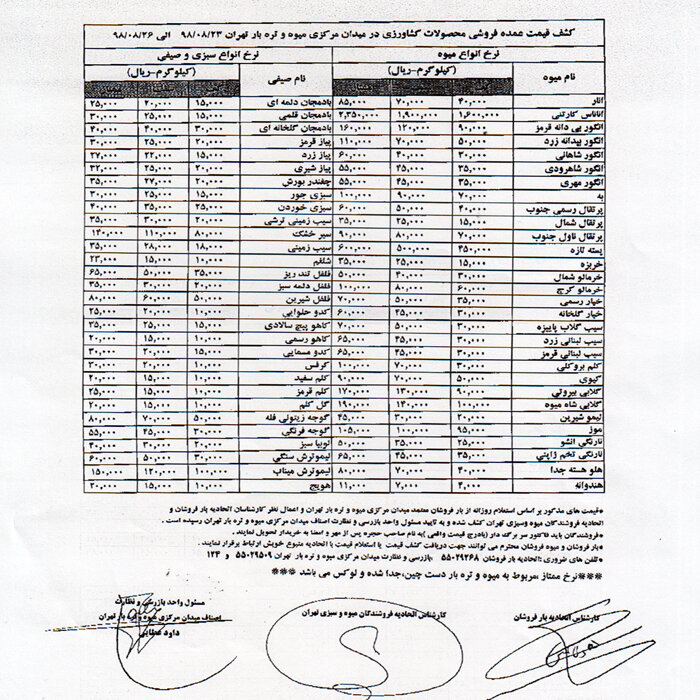 کشف قیمت عمده فروشی محصولات کشاورزی در میدان مرکزی میوه و تره بار تهران ۹۸/۰۸/۲۳ الی ۹۸/۰۸/۲۶
نرخ انواع میوه نرخ انواع سبزی و صیفی
نام میوه (کیلوگرم-ریال) نام صیفی (کیلوگرم-ریال)
انار ۴۰,۰۰۰ ۷۰,۰۰۰ ۸۵,۰۰۰ بادمجان دلمه ای ۱۵,۰۰۰ ۲۰,۰۰۰ ۲۵,۰۰۰
آناناس کارتنی ۱,۶۰۰,۰۰۰ ۱,۹۰۰,۰۰۰ ۲,۳۵۰,۰۰۰ بادمجان قلمی ۱۵,۰۰۰ ۲۵,۰۰۰ ۳۰,۰۰۰
انگور بی دانه قرمز ۹۰,۰۰۰ ۱۲۰,۰۰۰ ۱۶۰,۰۰۰ بادمجان گلخانه ای ۳۰,۰۰۰ ۴۰,۰۰۰
انگور بیدانه زرد ۵۰,۰۰۰ ۷۰,۰۰۰ ۱۱۰,۰۰۰ پیاز قرمز ۲۰,۰۰۰ ۳۰,۰۰۰ ۳۵,۰۰۰
انگور شاهانی ۳۰,۰۰۰ ۴۰,۰۰۰ ۶۰,۰۰۰ پیاز زرد ۱۵,۰۰۰ ۲۲,۰۰۰ ۲۷,۰۰۰
انگور شاهرودی ۳۵,۰۰۰ ۴۵,۰۰۰ ۵۵,۰۰۰ پیاز شیری ۲۰,۰۰۰ ۲۲,۰۰۰
انگور مهری ۳۵,۰۰۰ ۴۵,۰۰۰ ۵۵,۰۰۰ چغندر بورش ۲۰,۰۰۰ ۲۷,۰۰۰ ۳۵,۰۰۰
به ۷۰,۰۰۰ ۹۰,۰۰۰ ۱۰۰,۰۰۰ سبزی جور ۱۵,۰۰۰ ۲۵,۰۰۰ ۳۰,۰۰۰
پرتقال رسمی جنوب ۴۰,۰۰۰ ۵۰,۰۰۰ ۶۰,۰۰۰ سبزی خوردن ۲۵,۰۰۰ ۳۵,۰۰۰ ۴۰,۰۰۰
پرتقال شمال ۱۵,۰۰۰ ۲۵,۰۰۰ ۳۵,۰۰۰ سیب زمینی ترشی ۲۰,۰۰۰ ۳۰,۰۰۰ ۳۵,۰۰۰
پرتقال ناول جنوب ۷۰,۰۰۰ ۸۰,۰۰۰ ۹۰,۰۰۰ سیر خشک ۸۰,۰۰۰ ۱۱۰,۰۰۰ ۱۴۰,۰۰۰
پسته تازه ۴۵۰,۰۰۰ ۵۰۰,۰۰۰ ۶۰۰,۰۰۰ سیب زمینی ۱۸,۰۰۰ ۲۸,۰۰۰ ۳۵,۰۰۰
خربزه ۱۵,۰۰۰ ۲۵,۰۰۰ ۳۵,۰۰۰ شلغم ۱۰,۰۰۰ ۱۵,۰۰۰ ۲۳,۰۰۰
خرمالو شمال ۳۰,۰۰۰ ۴۰,۰۰۰ ۵۰,۰۰۰ فلفل تند ریز ۳۵,۰۰۰ ۵۰,۰۰۰ ۶۵,۰۰۰
خرمالو کرج ۶۰,۰۰۰ ۸۰,۰۰۰ ۱۰۰,۰۰۰ فلفل دلمه سبز ۲۰,۰۰۰ ۳۰,۰۰۰ ۳۵,۰۰۰
خیار رسمی ۳۵,۰۰۰ ۵۰,۰۰۰ ۷۰,۰۰۰ فلفل شیرین ۵۰,۰۰۰ ۶۰,۰۰۰ ۸۰,۰۰۰
خیار گلخانه ۳۰,۰۰۰ ۴۵,۰۰۰ ۶۰,۰۰۰ کدو حلوایی ۱۰,۰۰۰ ۲۰,۰۰۰ ۲۵,۰۰۰
سیب گلاب پاییزه ۳۰,۰۰۰ ۵۰,۰۰۰ ۷۰,۰۰۰ کاهو پیچ سالادی ۱۵,۰۰۰ ۲۵,۰۰۰ ۳۵,۰۰۰
سیب لبنانی زرد ۳۰,۰۰۰ ۴۵,۰۰۰ ۶۵,۰۰۰ کاهو رسمی ۱۰,۰۰۰ ۱۵,۰۰۰ ۲۰,۰۰۰
سیب لبنانی قرمز ۳۰,۰۰۰ ۴۵,۰۰۰ ۶۵,۰۰۰ کدو مسمایی ۱۵,۰۰۰ ۲۰,۰۰۰ ۳۰,۰۰۰
کلم بروکلی ۳۰,۰۰۰ ۷۰,۰۰۰ ۱۰۰,۰۰۰ کرفس ۱۰,۰۰۰ ۲۰,۰۰۰ ۳۰,۰۰۰
کیوی ۵۰,۰۰۰ ۷۰,۰۰۰ ۹۰,۰۰۰ کلم سفید ۱۰,۰۰۰ ۱۵,۰۰۰ ۲۰,۰۰۰
گلابی بیروتی ۹۰,۰۰۰ ۱۳۰,۰۰۰ ۱۷۰,۰۰۰ کلم قرمز ۱۰,۰۰۰ ۱۵,۰۰۰ ۲۰,۰۰۰
گلابی شاه میوه ۱۰۰,۰۰۰ ۱۴۰,۰۰۰ ۱۹۰,۰۰۰ گل کلم ۱۰,۰۰۰ ۱۵,۰۰۰ ۲۰,۰۰۰
لیمو شیرین ۲۰,۰۰۰ ۳۰,۰۰۰ ۴۵,۰۰۰ گوجه زیتونی فله ۵۰,۰۰۰ ۷۰,۰۰۰ ۸۰,۰۰۰
موز ۹۵,۰۰۰ ۱۰۰,۰۰۰ ۱۰۵,۰۰۰ گوجه فرنگی ۳۰,۰۰۰ ۴۵,۰۰۰ ۵۵,۰۰۰
نارنگی انشو ۲۵,۰۰۰ ۳۵,۰۰۰ ۵۰,۰۰۰ لوبیا سبز ۲۰,۰۰۰ ۳۰,۰۰۰ ۴۰,۰۰۰
نارنگی تخم ژاپنی ۳۵,۰۰۰ ۴۵,۰۰۰ ۶۵,۰۰۰ لیموترش سنگی ۳۰,۰۰۰ ۵۰,۰۰۰ ۶۰,۰۰۰
هلو هسته جدا ۴۰,۰۰۰ ۷۰,۰۰۰ ۸۰,۰۰۰ لیموترش میناب ۱۰۰,۰۰۰ ۱۲۰,۰۰۰ ۱۵۰,۰۰۰
هندوانه ۴,۰۰۰ ۷,۰۰۰ ۱۱,۰۰۰ هویج ۱۰,۰۰۰ ۱۵,۰۰۰ ۲۰,۰۰۰
*قیمت های مذکور بر اساس استعلام روزانه از بار فروشان معتمد میدان مرکزی میوه و تره بار تهران و اعمال نظر کارشناسان اتحادیه بار فروشان و
اتحادیه فروشندگان میوه وسبزی تهران کشف شده و به تایید مسئول واحد بازرسی و نظارت اصناف میدان مرکزی میوه و تره بار تهران رسیده است .
*فروشندگان باید فاکتور سر برگ دار (بادرج قیمت واقعی )به نام صاحب حجره پس از مهر و امضا به خریدار تحویل نمایند .
*بار فروشان و میوه فروشان محترم می توانند جهت دریافت کشف قیمت یا استعلام قیمت با اتحادیه متبوع خویش ارتباط برقرار نمایند .
*تلفن های ضروری :اتحادیه بار فروشان ۵۵۰۲۹۲۶۸ ،بازرسی و نظارت میدان مرکزی میوه و تره بار تهران ۵۵۰۲۹۵۰۹ و ۱۲۴
***نرخ ممتاز ،مربوط به میوه و تره بار دست چین،جدا شده و لوکس می باشد ***
کارشناس اتحادیه بار فروشان
کارشناس اتحادیه فروشندگان میوه و سبزی تهران
مسئول واحد بازرسی و نظارت
اصناف میدان مرکزی میوه و تره بار تهران
داود عطایی